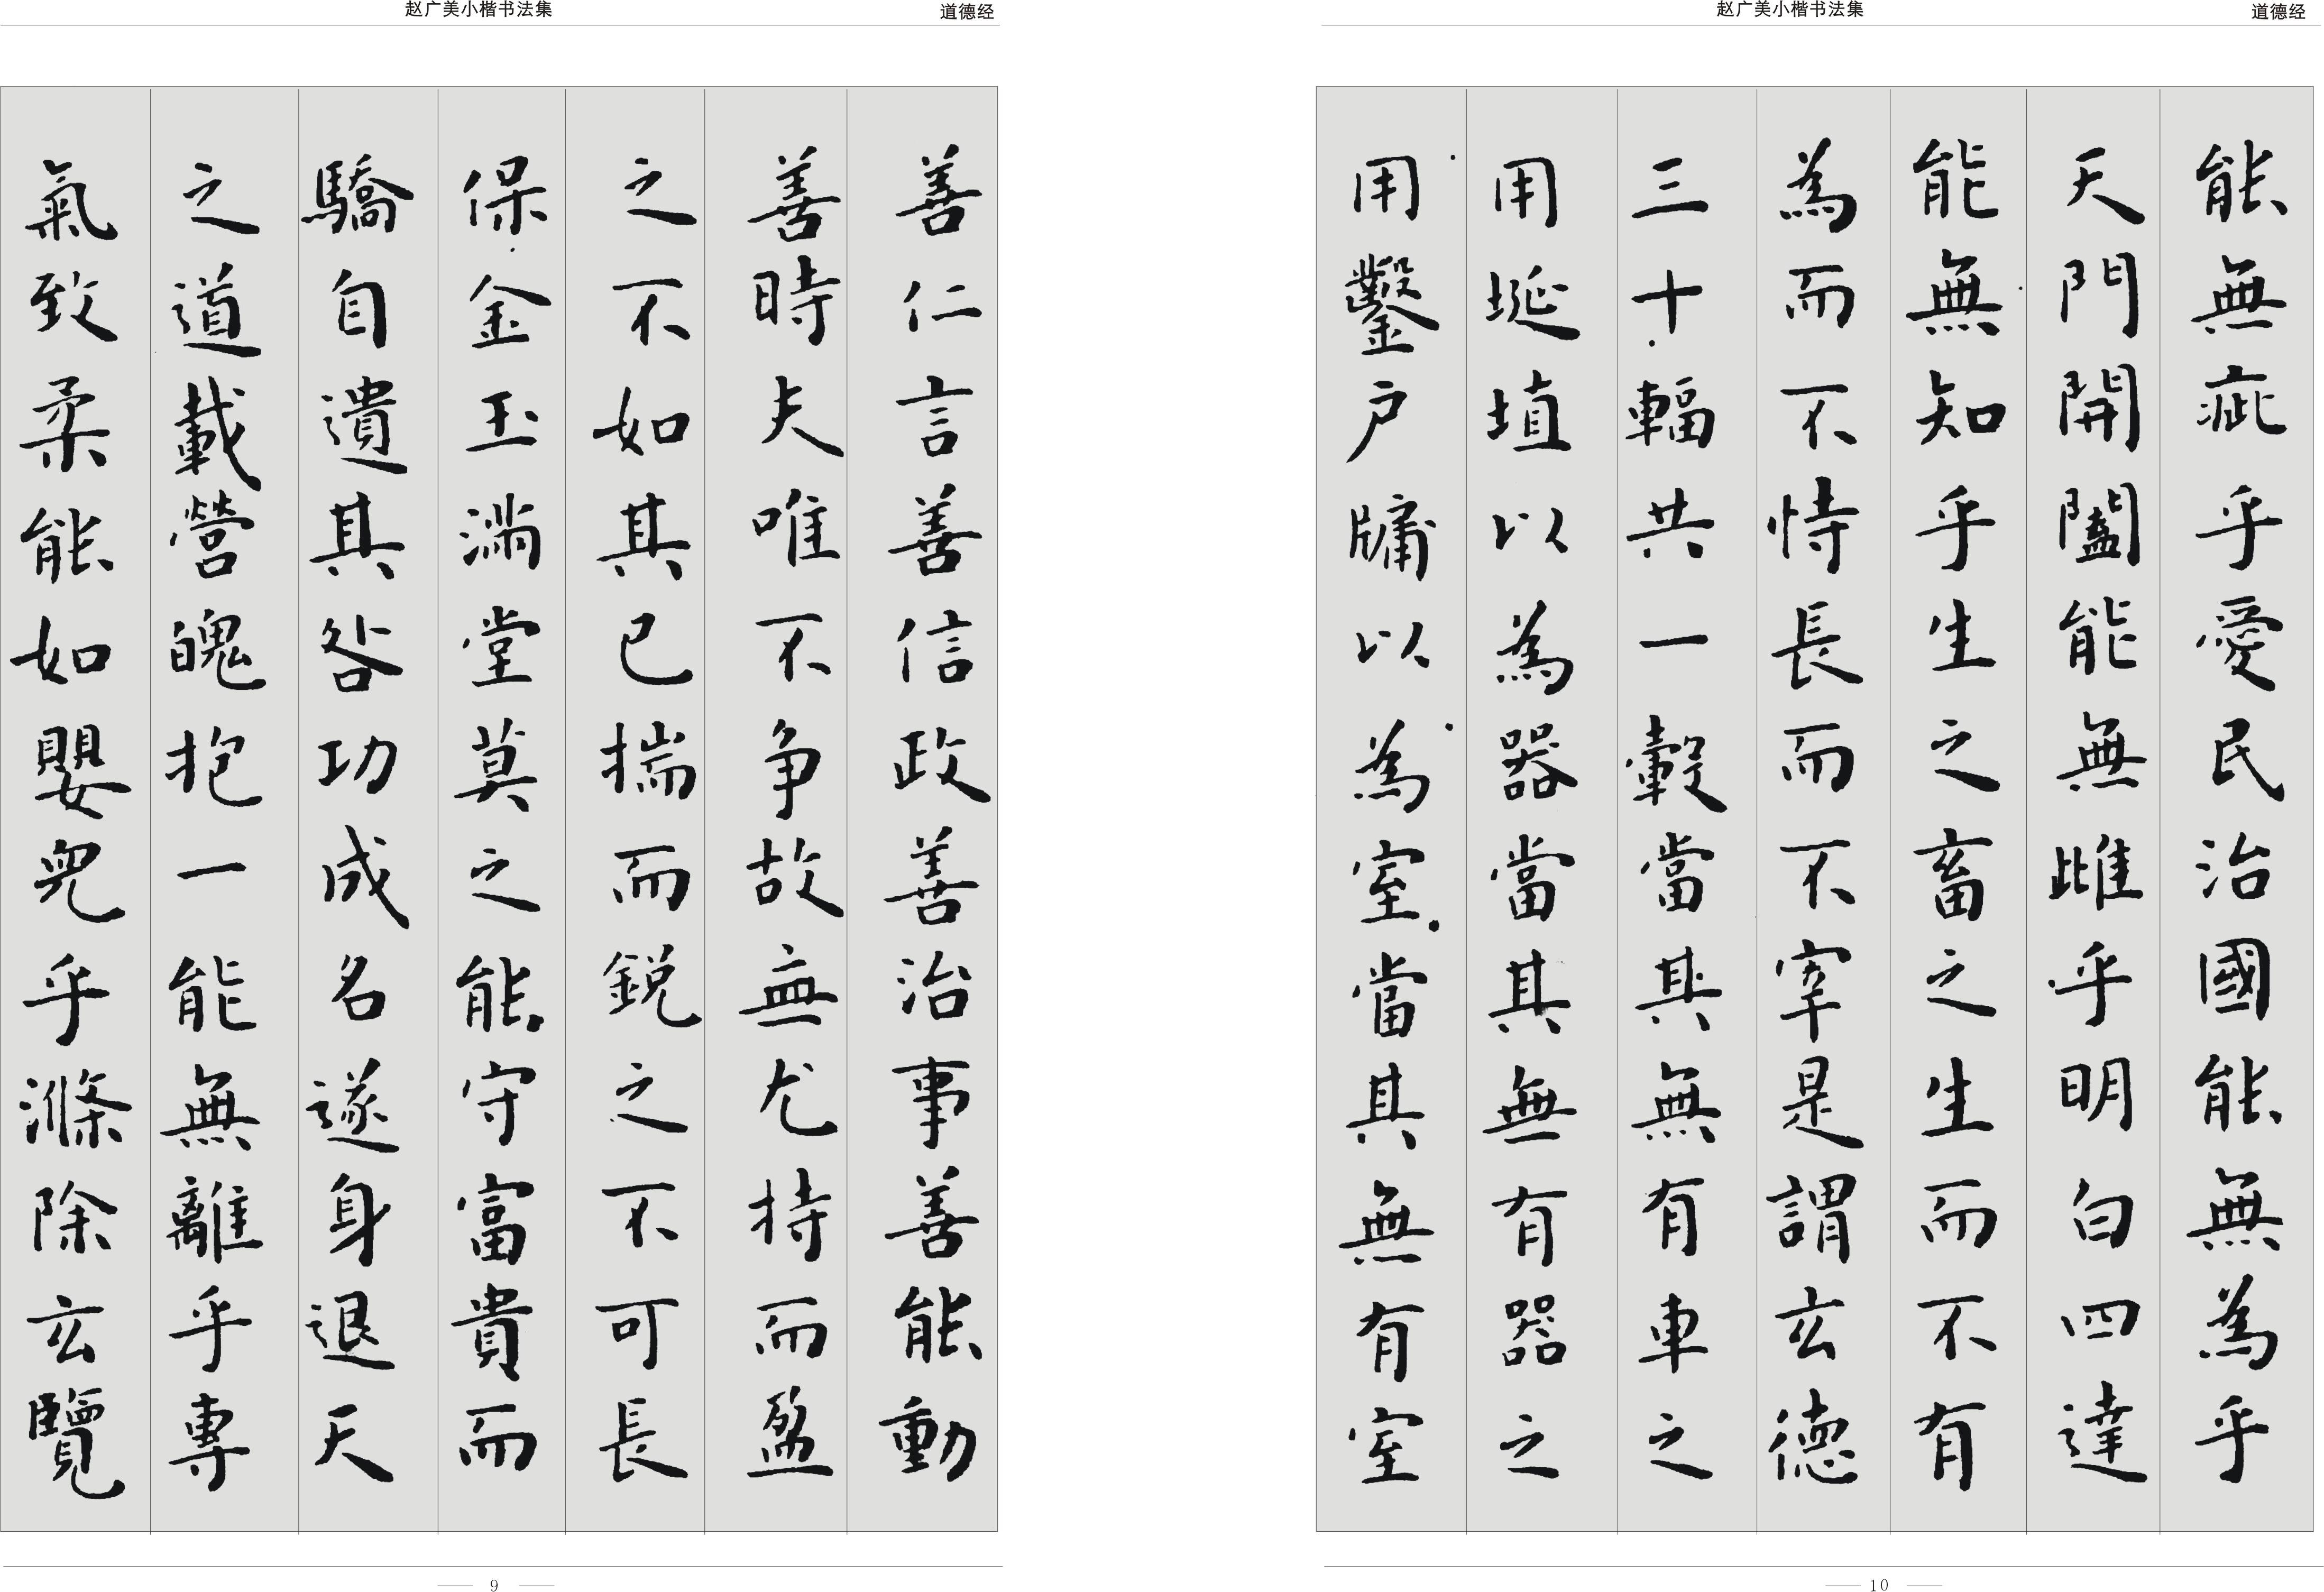 赵广美小楷书法集
道德经
善仁言善信政善治事善能動
善時夫唯不争故無尤持而盈
之不如其已揣而鋭之不可長
保金玉滿堂莫之能守富貴而
驕自遺其咎功成名遂身退天
之道載營魄抱一能無離乎專
氣致柔能如嬰兒乎滌除玄覽
9
赵广美小楷书法集
道德经
能無疵乎愛民治國能無為乎
天門開闔能無雌乎明白四達
能無知乎生之畜之生而不有
為而不恃長而不宰是謂玄德
三十輻共一轂當其無有車之
用埏埴以為器當其無有器之
用鑿户牖以為室當其無有室
10